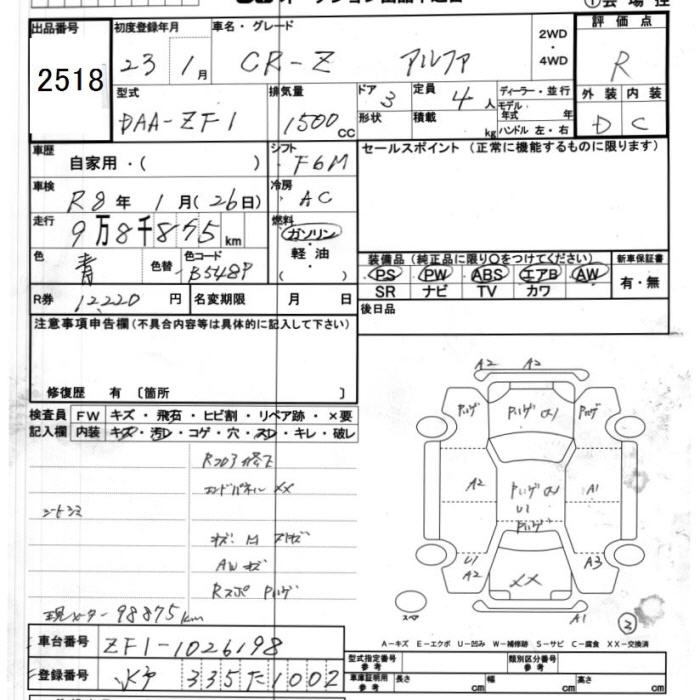 出品番号
2518
初度登録年月
23 1月
車名・グレード
CR-Z アルファ
2WD
・
4WD
評価点
R
外装 内装
D C
型式
DAA-ZF1
排気量
1500cc
ドア
3
定員
4人
形状
積載
kg
ディーラー・並行
モデル年式 年
ハンドル 左・右
車歴
自家用・( )
シフト
F6M
セールスポイント(正常に機能するものに限ります)
車検
R8年 1月(26日)
冷房
AC
走行
9万8千875km
燃料
ガソリン
・
軽油
( )
色
青
色替
色コード
B548P
装備品(純正品に限り○をつけてください)
PS PW ABS エアB AW
SR ナビ TV カワ
新車保証書
有・無
R券 12,220円
名変期限 月 日
後日品
注意事項申告欄(不具合内容等は具体的に記入して下さい)
修復歴 有 〔箇所 〕
検査員記入欄
FW キズ・飛石・ヒビ割・リペア跡・×要
内装 キズ・汚レ・コゲ・穴・スレ・キレ・破レ
エンドパネル XX
AW キズ
現メーター98875km
A2 A2
A2
A1
U1
U1
A2
A3
XX
A1
スペア
3
A-キズ E-エクボ U-凹み W-補修跡 S-サビ C-腐食 XX-交換済
車台番号
ZF1-1026198
登録番号
335 た 1002
型式指定番号
参考
類別区分番号
参考
車庫証明用
参考
長さ cm
幅 cm
高さ cm